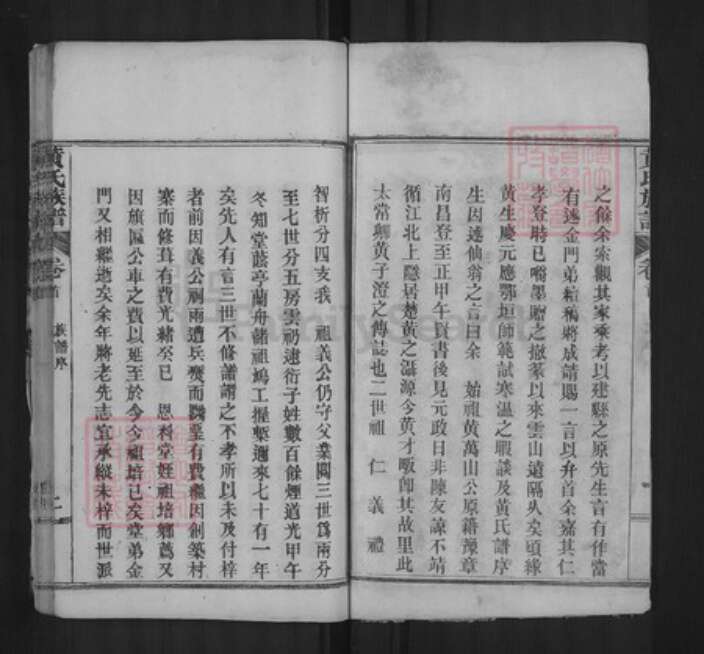 之餘余索觀其家乘考以建縣之原先生言有律當
有述金門弟結稿將成請賜一言以弁首余嘉其仁
孝登時已嚼墨贈之撤篆以來雲山遠隔久矣頃緣
黃生慶元應鄂垣師範試寒溫之暇談及黃氏譜序
生因述仙翁之言曰余 始祖黃萬山公原籍豫章
南昌登至正甲午賢書後見元政日非陳友諒不靖
循江北上隱居楚黃之灄源今黃才畈卽其故里此
太常卿黃子澄之傳誌也二世祖 仁 義 禮
智析分四支我 祖義公仍守父業閱三世爲兩分
至七世分五房雲礽逮衍子姓數百餘煙道光甲午
冬知堂蔎亭蘭舟諸祖鳩工握槧邇來七十有一年
矣先人有言三世不修譜謂之不孝所以未及付梓
者前因義公祠兩遭兵燹而戮堊有費繼因創築村
寨而修葺有費光緖癸巳 恩科堂姪祖培鄉薦又
因旗匾公車之費以延至於今今祖培已矣堂弟金
門又相繼逝矣余年將老先志宜承縱未梓而世派
黃氏族譜 卷首 族譜序